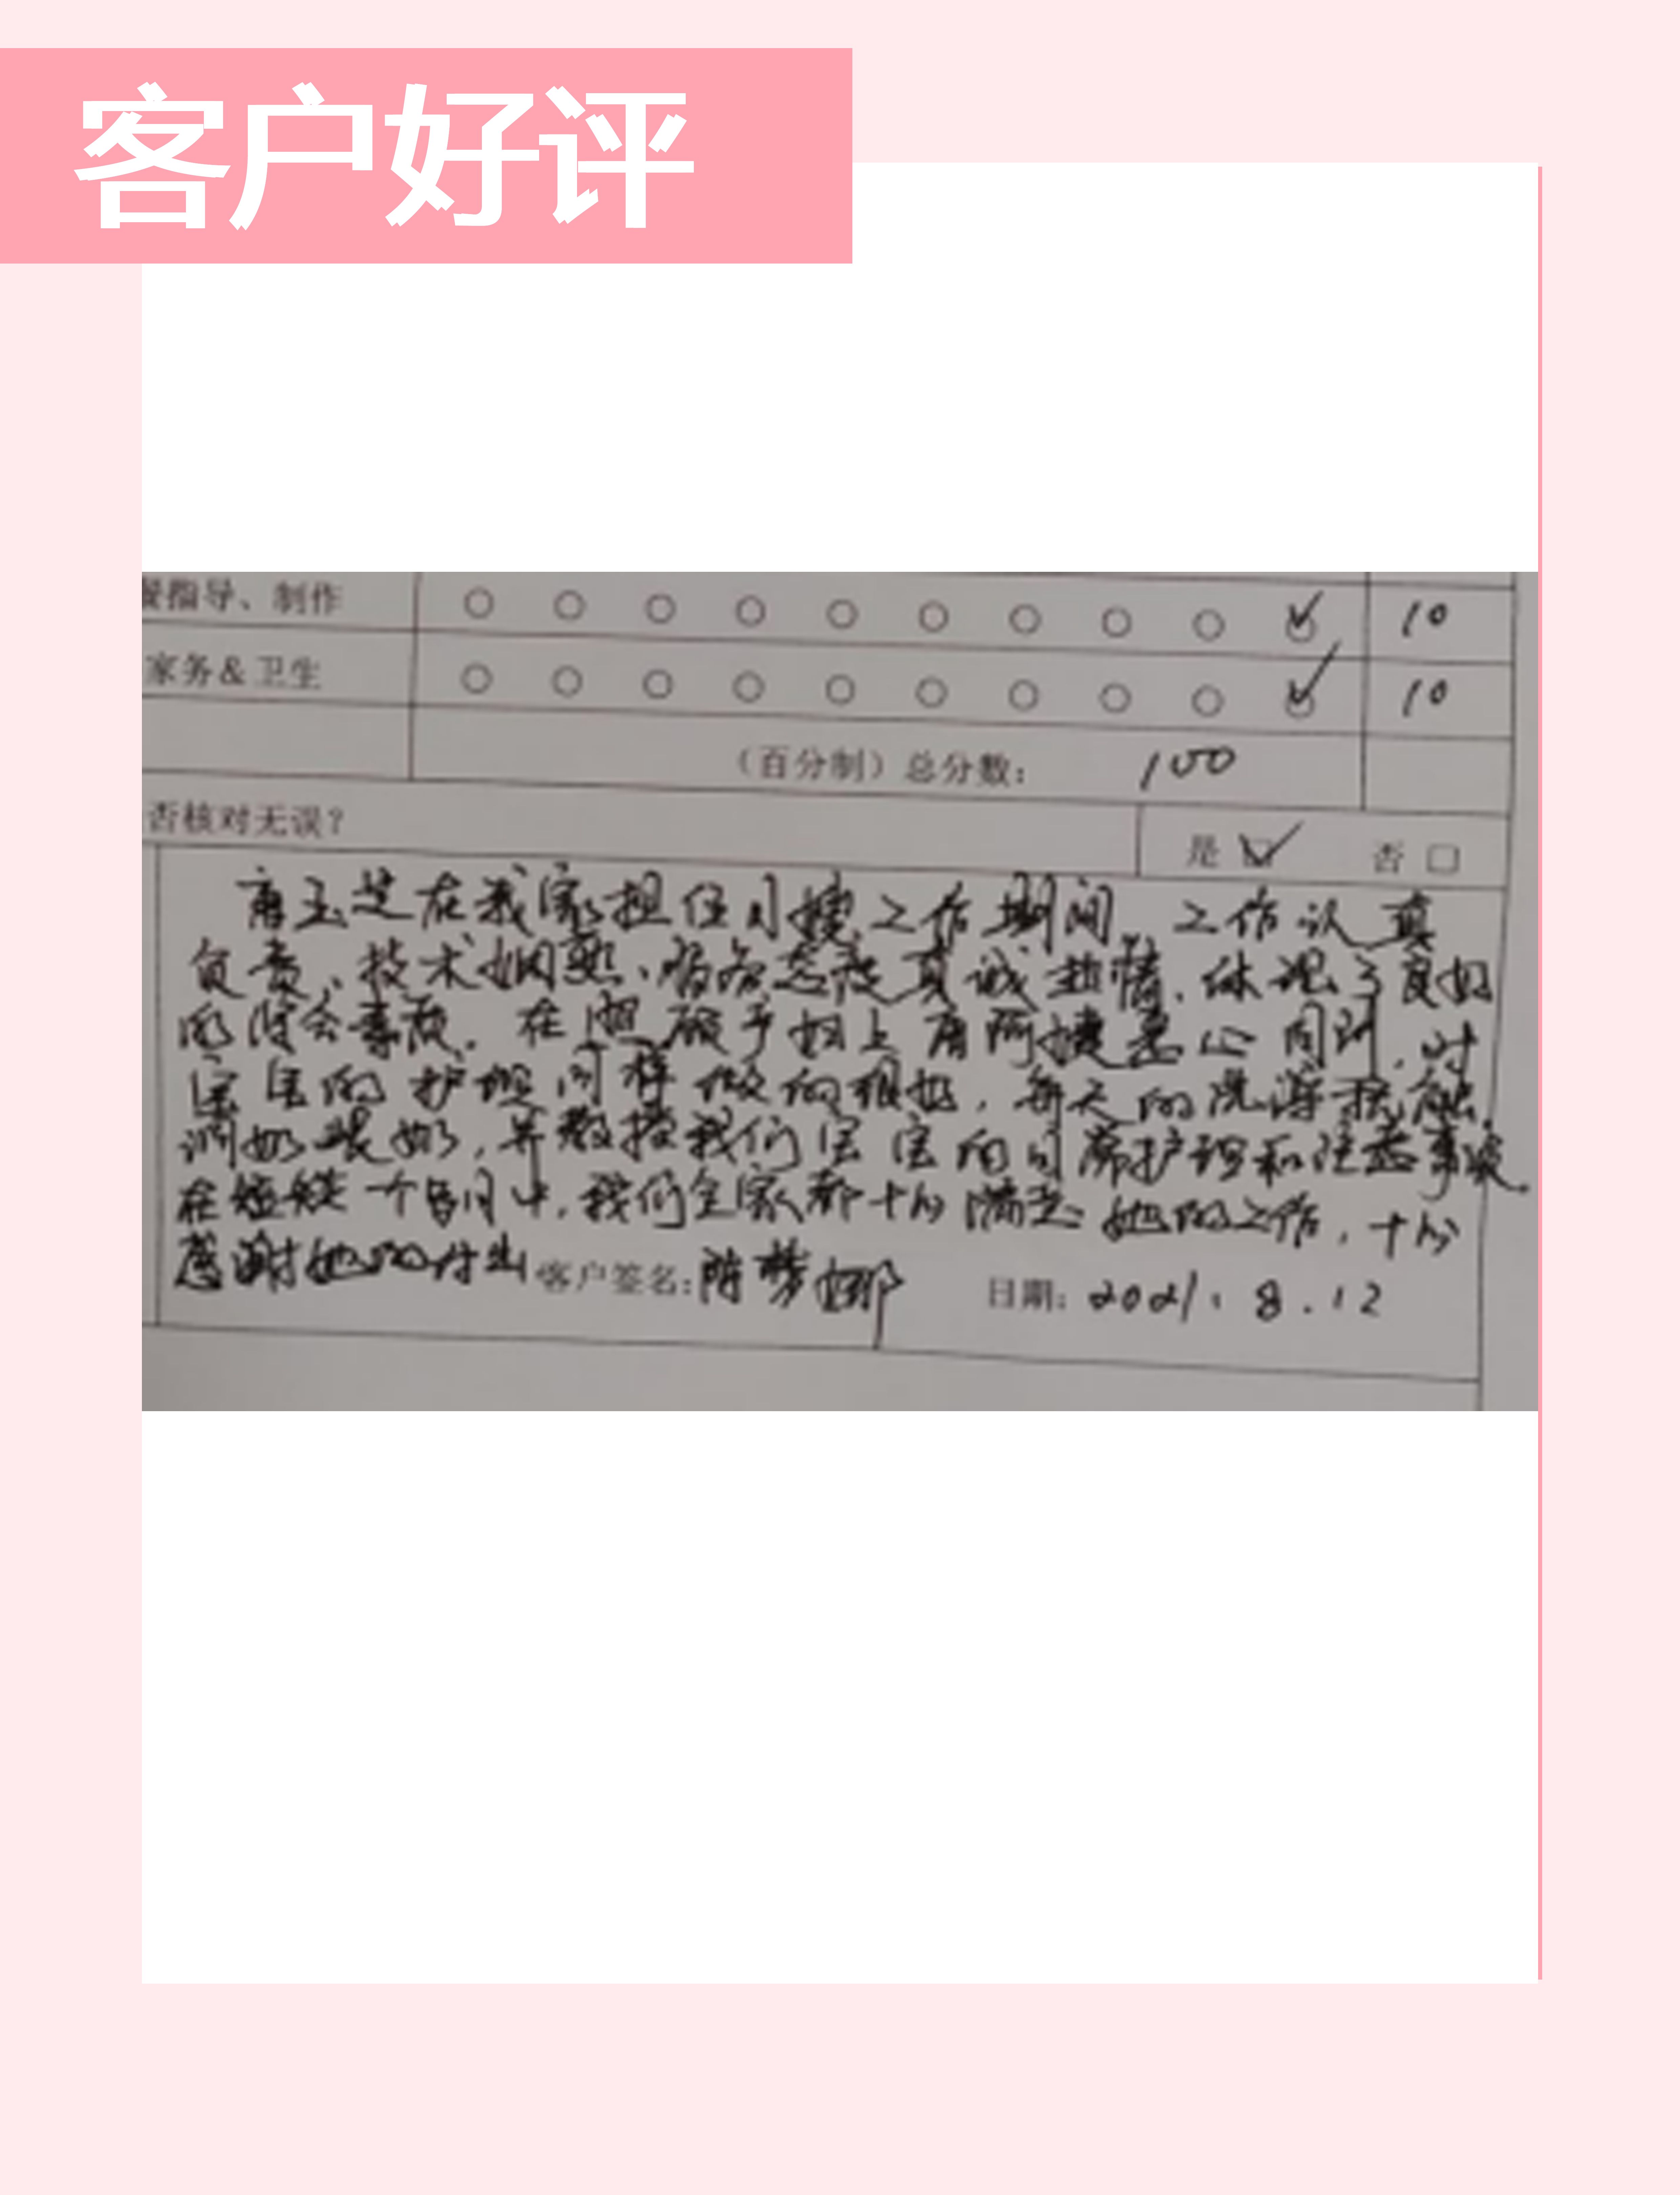 客户好评
餐指导、制作 10
家务&卫生 10
（百分制）总分数： 100
否核对无误？ 是 否
玉芝在我家担任月嫂工作期间，工作认真
负责、技术娴熟、服务态度真诚热情，体现了良好
的综合素质。在照顾产妇上唐阿姨悉心周到，对
宝宝的护理同样做的很好，每天的洗澡抚触，
调奶喂奶，并教授我们宝宝的日常护理和注意事项。
在短短一个月中，我们全家都十分满意她的工作，十分
感谢她的付出 客户签名：陈梦娜 日期：2021.8.12